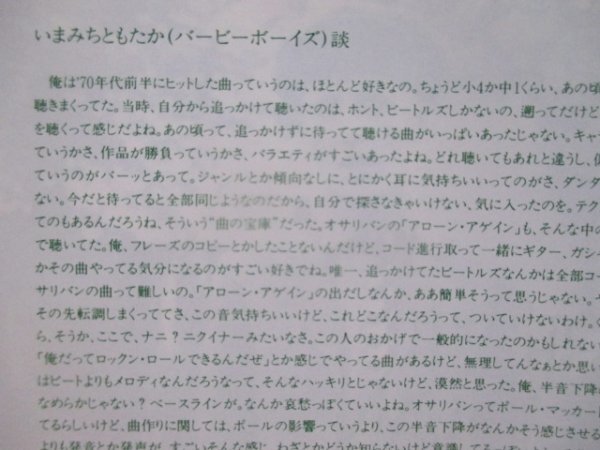 いまみちともたか(バービーボーイズ)談
俺は'70年代前半にヒットした曲っていうのは、ほとんど好きなの。ちょうど小4か中1くらい、あの頃
聴きまくってた。当時、自分から追っかけて聴いたのは、ホント、ビートルズしかないの、遡ってだけど
を聴くって感じだよね。あの頃って、追っかけずに待ってて聴ける曲がいっぱいあったじゃない。キャ
ていうかさ、作品が勝負っていうかさ、バラエティがすごいあったよね。どれ聴いてもあれと違うし、
ていうのがバーッとあって。ジャンルとか傾向なしに、とにかく耳に気持ちいいってのがさ、ダンダ
ない。今だと待ってると全部同じようなのだから、自分で探さなきゃいけない、気に入ったのを。テク
てのもあるんだろうね、そういう“曲の宝庫”だった。オサリバンの「アローン・アゲイン」も、そんな中の
で聴いてた。俺、フレーズのコピーとかしたことないんだけど、コード進行取って一緒にギター、ガシ
かその曲やってる気分になるのがすごい好きでね。唯一、追っかけてたビートルズなんかは全部コー
サリバンの曲って難しいの。「アローン・アゲイン」の出だしなんか、ああ簡単そうって思うじゃない。
その先転調しまくっててさ、この音気持ちいいけど、これどこなんだろうって、ついていけないわけ。
ら、そうか、ここで、ナニ？ニクイナーみたいなさ。この人のおかげで一般的になったのかもしれない
「俺だってロックン・ロールできるんだぜ」とか感じでやってる曲があるけど、無理してんなぁとか思い
はビートよりもメロディなんだろうなって、そんなハッキリとじゃないけど、漠然と思った。俺、半音下降
なめらかじゃない？ベースラインが。なんか哀愁っぽくていいよね。オサリバンってポール・マッカー
てるらしいけど、曲作りに関しては、ポールの影響っていうより、この半音下降がなんかそう感じさせる
よりも発音とか発声が、すごいそんな感じ。わざとかどうか知らないけど意識してる